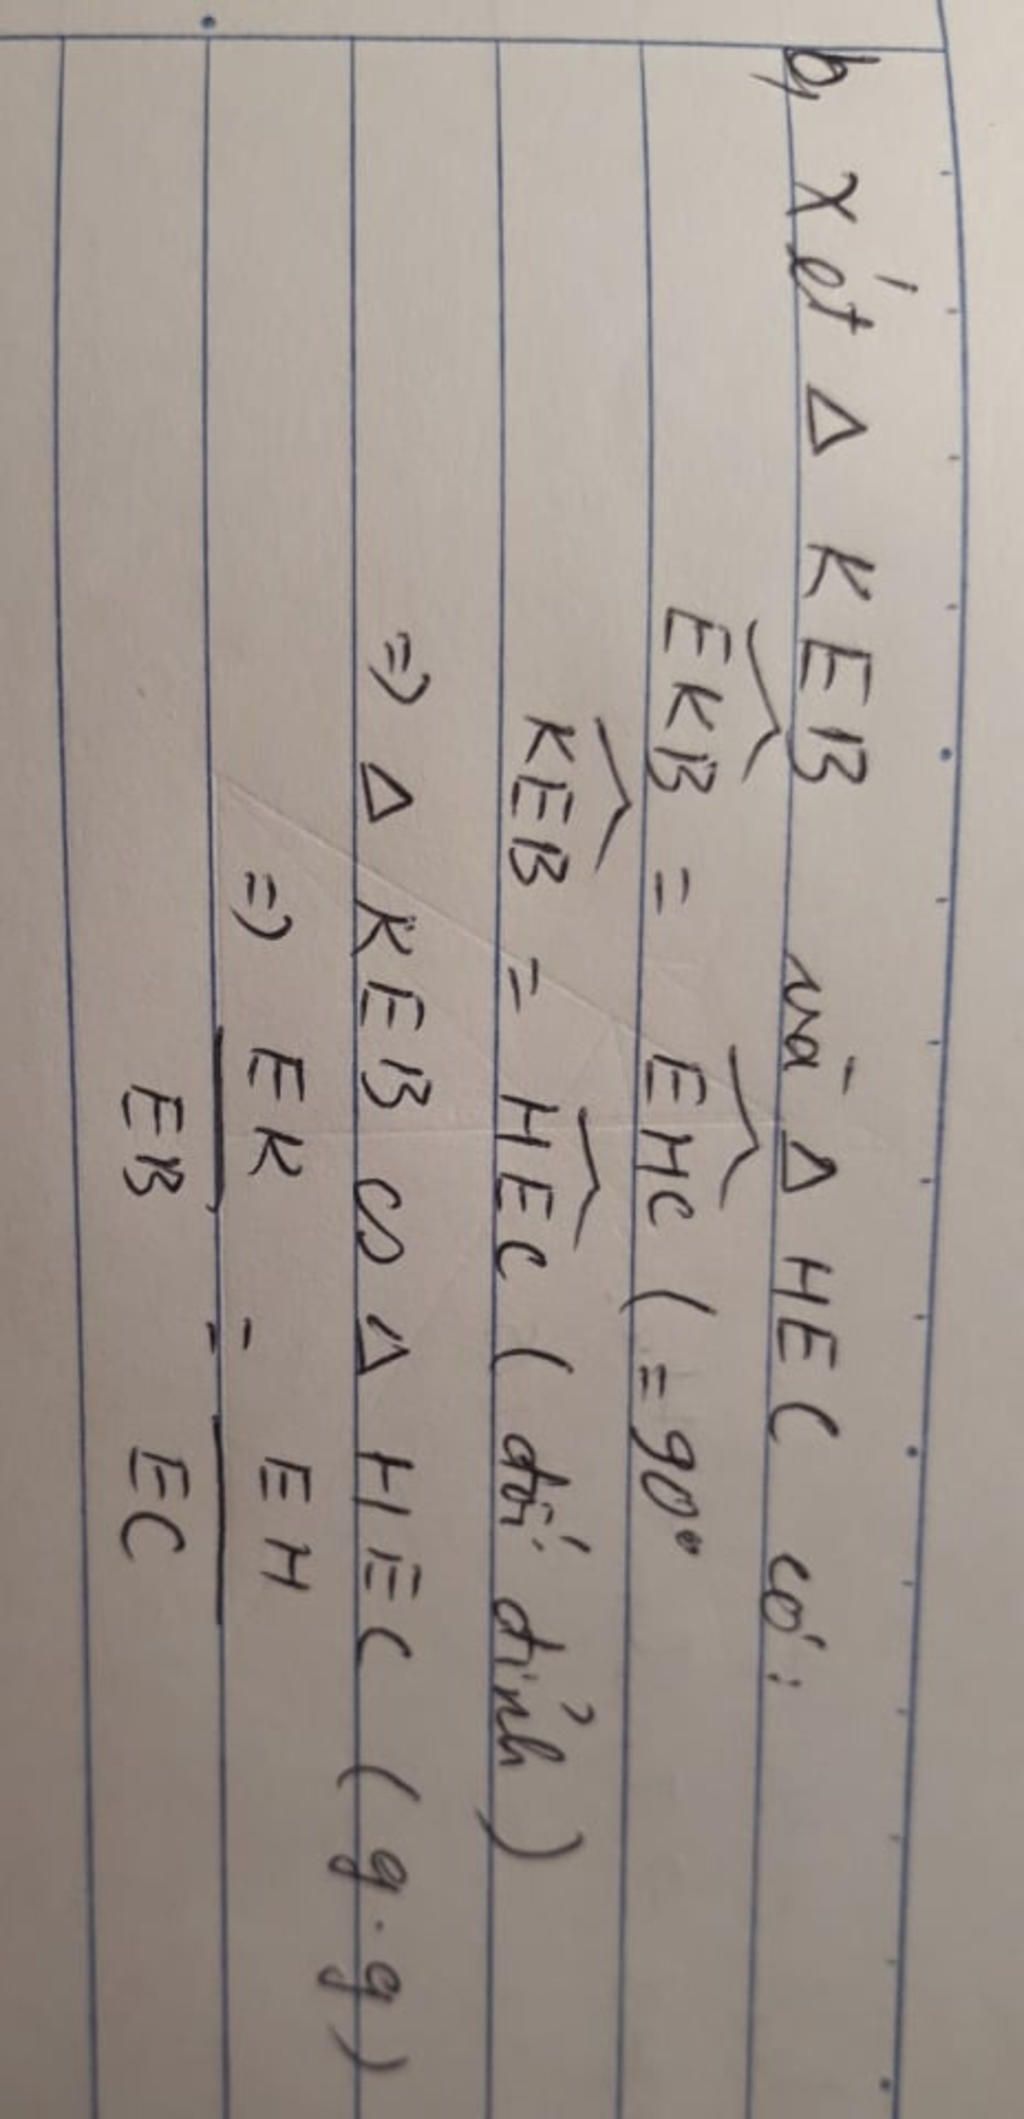 b, xét Δ KEB và Δ HEC có:
EKB = EHC ( = 90°
KEB = HEC ( đối đỉnh )
=> Δ KEB ∽ Δ HEC ( g.g )
=> EK/EB = EH/EC